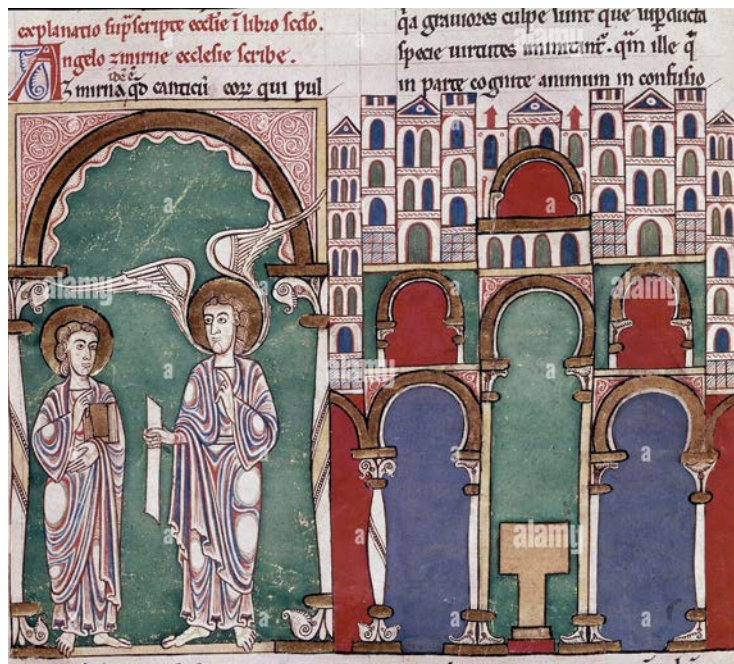 explanatio sup̄scripte ecclīe ī libro scdo.
Angelo zmirne ecclesie scribe.
idē ē
Zmirna qd canticū eorz qui pul
q̄a grauiores culpe sunt que sup̄ducta
specie uirtutes imitant̄. qm̄ ille q̄
in parte cognite animum in confusio
alamy
alamy
alamy
alamy
a
a
a
a
a
a
a